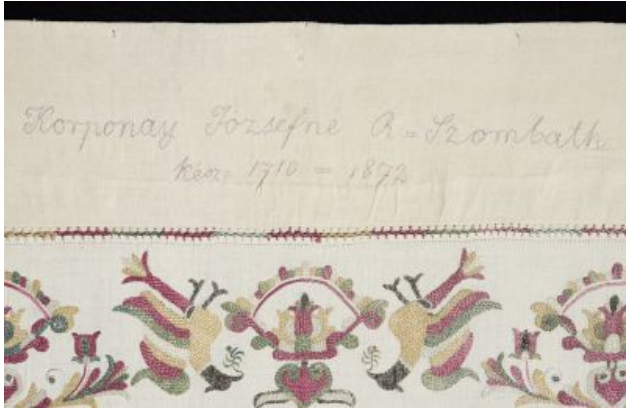 Korponay Józsefné R=Szombath
kész. 1710 = 1872